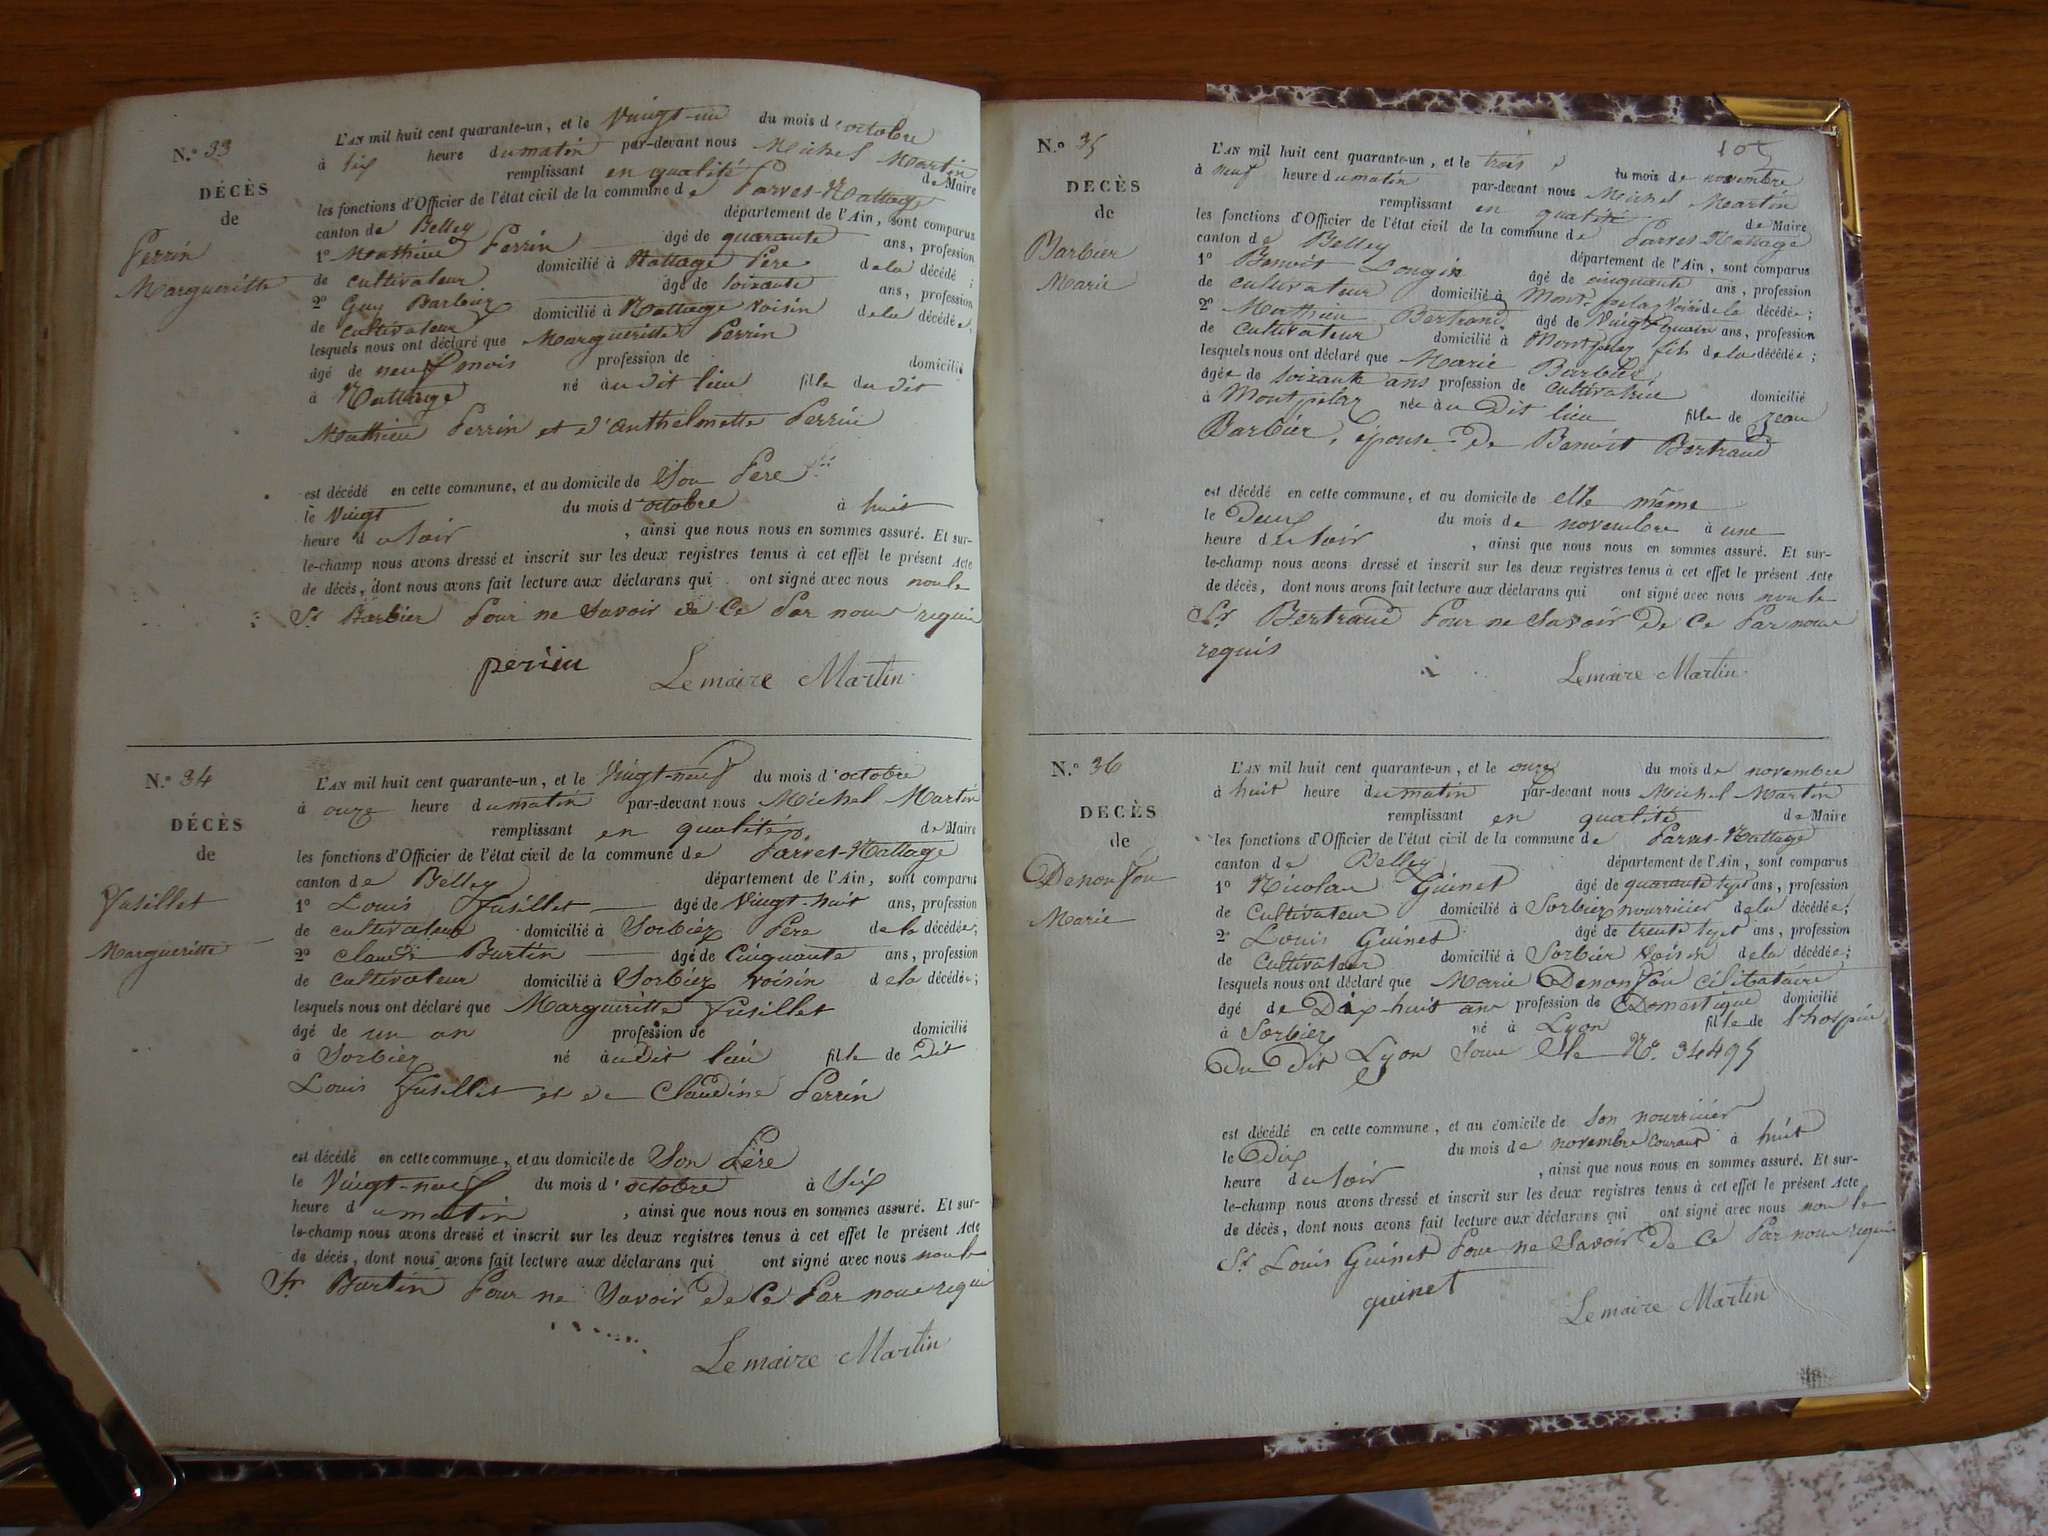 N.º 33
DÉCÈS
de
Perrin
Margueritte
L'AN mil huit cent quarante-un, et le Vingt-un du mois d'octobre
à six heure du matin par-devant nous Michel Martin
remplissant en qualité de Maire
les fonctions d'Officier de l'état civil de la commune de Parves-Nattage
canton de Belley département de l'Ain, sont comparus
1º Mathieu Perrin âgé de quarante ans, profession
de cultivateur domicilié à Nattage Père de la décédé ;
2º Guy Barbier âgé de soixante ans, profession
de cultivateur domicilié à Nattage voisin de la décédée ;
lesquels nous ont déclaré que Margueritte Perrin
âgé de neuf mois profession de domicilié
à Nattage né au dit lieu fille du dit
Mathieu Perrin et d'Anthelmette Perrin
est décédé en cette commune, et au domicile de son Père
le Vingt du mois d'octobre à huit
heure du soir , ainsi que nous nous en sommes assuré. Et sur-
le-champ nous avons dressé et inscrit sur les deux registres tenus à cet effet le présent Acte
de décès, dont nous avons fait lecture aux déclarans qui ont signé avec nous non le
Sr Barbier Pour ne savoir de ce Par nous requis
perrin
Lemaire Martin
N.º 34
DÉCÈS
de
Fusillet
Margueritte
L'AN mil huit cent quarante-un, et le Vingt-neuf du mois d'octobre
à onze heure du matin par-devant nous Michel Martin
remplissant en qualité de Maire
les fonctions d'Officier de l'état civil de la commune de Parves-Nattage
canton de Belley département de l'Ain, sont comparus
1º Louis Fusillet âgé de Vingt-huit ans, profession
de cultivateur domicilié à Sorbiez Père de la décédée ;
2º Claude Burtin âgé de Cinquante ans, profession
de cultivateur domicilié à Sorbiez voisin de la décédée ;
lesquels nous ont déclaré que Margueritte Fusillet
âgé de un an profession de domicilié
à Sorbiez né au Dit lieu fille de Dit
Louis Fusillet et de Claudine Perrin
est décédé en cette commune, et au domicile de son Père
le Vingt-neuf du mois d'octobre à Six
heure du matin , ainsi que nous nous en sommes assuré. Et sur-
le-champ nous avons dressé et inscrit sur les deux registres tenus à cet effet le présent Acte
de décès, dont nous avons fait lecture aux déclarans qui ont signé avec nous non le
Sr Burtin Pour ne savoir de ce Par nous requi
Lemaire Martin
105
N.º 35
DÉCÈS
de
Barbier
Marie
L'AN mil huit cent quarante-un, et le trois du mois de novembre
à neuf heure du matin par-devant nous Michel Martin
remplissant en qualité de Maire
les fonctions d'Officier de l'état civil de la commune de Parves-Nattage
canton de Belley département de l'Ain, sont comparus
1º Benoit Longin âgé de cinquante ans, profession
de cultivateur domicilié à Montpelaz voisin de la décédée ;
2º Mathieu Bertrand âgé de Vingt ans, profession
de cultivateur domicilié à Montpelaz fils de la décédée ;
lesquels nous ont déclaré que Marie Barbier
âgée de soixante ans profession de cultivatrice domicilié
à Montpelaz née au Dit lieu fille de Jean
Barbier, épouse de Benoit Bertrand
est décédé en cette commune, et au domicile de elle même
le Deux du mois de novembre à une
heure du soir , ainsi que nous nous en sommes assuré. Et sur-
le-champ nous avons dressé et inscrit sur les deux registres tenus à cet effet le présent Acte
de décès, dont nous avons fait lecture aux déclarans qui ont signé avec nous non le
Sr Bertrand Pour ne savoir De ce Par nous
requis
Lemaire Martin
N.º 36
DÉCÈS
de
Denonfou
Marie
L'AN mil huit cent quarante-un, et le onze du mois de novembre
à huit heure du matin par-devant nous Michel Martin
remplissant en qualité de Maire
les fonctions d'Officier de l'état civil de la commune de Parves-Nattage
canton de Belley département de l'Ain, sont comparus
1º Nicolas Guinet âgé de quarante sept ans, profession
de Cultivateur domicilié à Sorbiez nourricier de la décédée ;
2º Louis Guinet âgé de trente sept ans, profession
de Cultivateur domicilié à Sorbier voisin de la décédée ;
lesquels nous ont déclaré que Marie Denonfou célibataire
âgé de Dix-huit ans profession de Domestique domicilié
à Sorbiez né à Lyon fille de l'hospice
Du dit Lyon sous le Nº. 34495
est décédé en cette commune, et au domicile de son nourricier
le Dix du mois de novembre Courant à huit
heure du soir , ainsi que nous nous en sommes assuré. Et sur-
le-champ nous avons dressé et inscrit sur les deux registres tenus à cet effet le présent Acte
de décès, dont nous avons fait lecture aux déclarans qui ont signé avec nous non le
Sr Louis Guinet Pour ne savoir De ce Par nous requis
guinet
Lemaire Martin